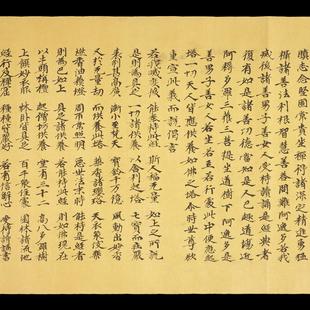 瞋志念堅固常貴坐禪得諸深定精進勇猛
攝諸善法利根智慧善答問難阿逸多若我
滅後諸善男子善女人受持讀誦是經典者
復有如是諸善功德當知是人已趣道場近
阿耨多羅三藐三菩提坐道樹下阿逸多是
善男子善女人若坐若立若行處此中便應起
塔一切天人皆應供養如佛之塔尒時世尊欲
重宣此義而說偈言
若我滅度後 能奉持此經 斯人福無量 如上之所說
是則為具足 一切諸供養 以舍利起塔 七寶而莊嚴
表剎甚高廣 漸小至梵天 寶鈴千万億 風動出妙音
又於無量劫 而供養此塔 華香諸瓔珞 天衣眾伎樂
燃香油蘇燈 周匝常照明 惡世法末時 能持是經者
則為已如上 具足諸供養 若能持此經 則如佛現在
以牛頭栴檀 起僧坊供養 堂有三十二 高八多羅樹
上饌妙衣服 床臥皆具足 百千眾住處 園林諸流池
經行及禪窟 種種皆嚴好 若有信解心 受持讀誦書